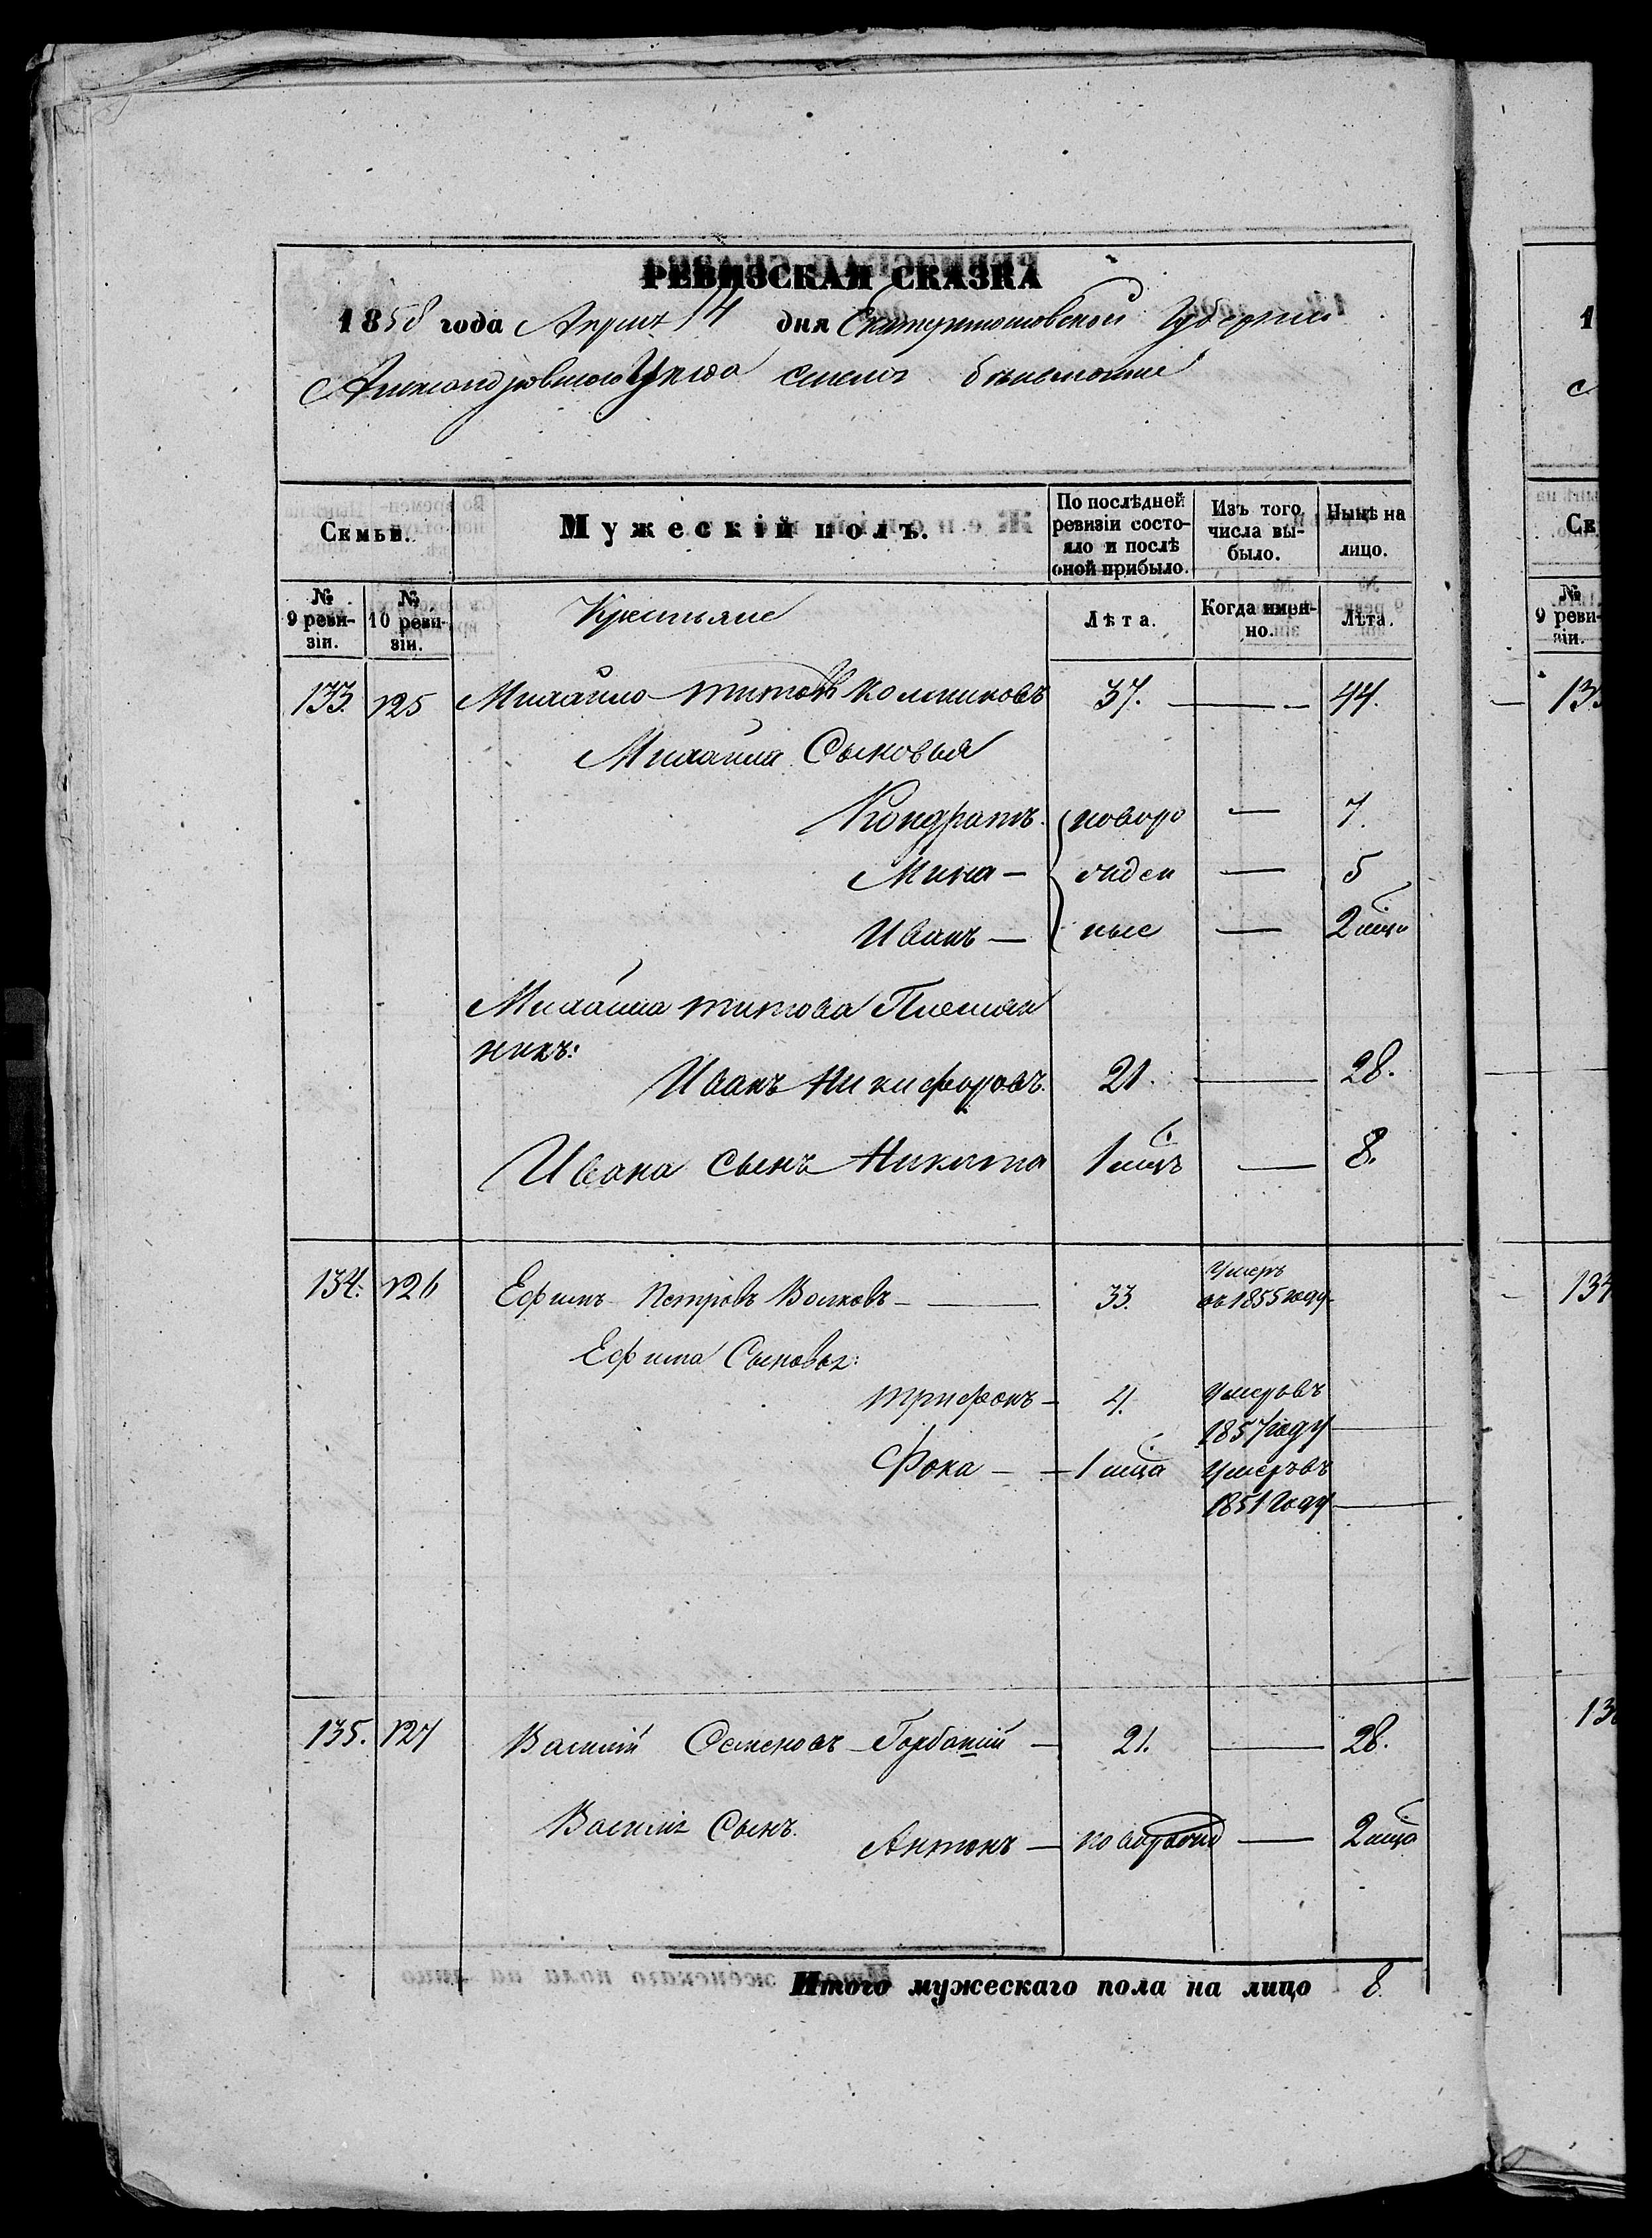 РЕВИЗСКАЯ СКАЗКА
1858 года Апреля 14 дня Екатеринославской Губернии
Александровского Уезда
Семьи. Мужескій полъ. По послѣдней ревизіи состояло и послѣ оной прибыло. Изъ того числа выбыло. Нынѣ на лицо.
№ 9 ревизіи. № 10 ревизіи. Крестьяне Лѣта. Когда именно. Лѣта.
133. 125 Михайло Титовъ 37. — 44.
Михайла Сыновья
Кондратъ новоро — 7.
Мина — жден — 5
Иванъ — ные — 2 мѣца
Михайла Титова Племян
никъ:
Иванъ Никифоровъ 21. — 28.
Ивана сынъ Никита 1 мѣцъ — 8.
134. 126 Ефимъ Петровъ Волковъ — 33. Умеръ
въ 1855 году
Ефима Сыновья:
Трифонъ — 4. Умеръ въ
1857 году —
Фока — 1 мѣца Умеръ въ
1851 году —
135. 127 Василій Семеновъ — 21. — 28.
Василія Сынъ
Антонъ — новорожд — 2 мѣца
Итого мужескаго пола на лицо 8